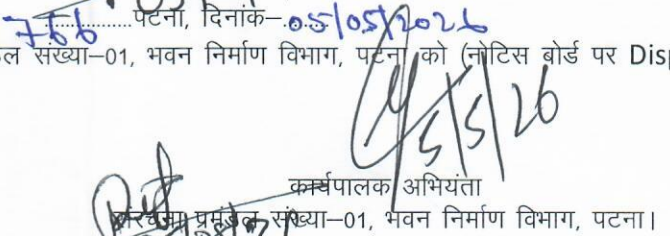 766 पटना, दिनांक–05/05/2026
ल संख्या–01, भवन निर्माण विभाग, पटना को (नोटिस बोर्ड पर Disp
5/5/26
कार्यपालक अभियंता
संरचना प्रमंडल संख्या–01, भवन निर्माण विभाग, पटना।